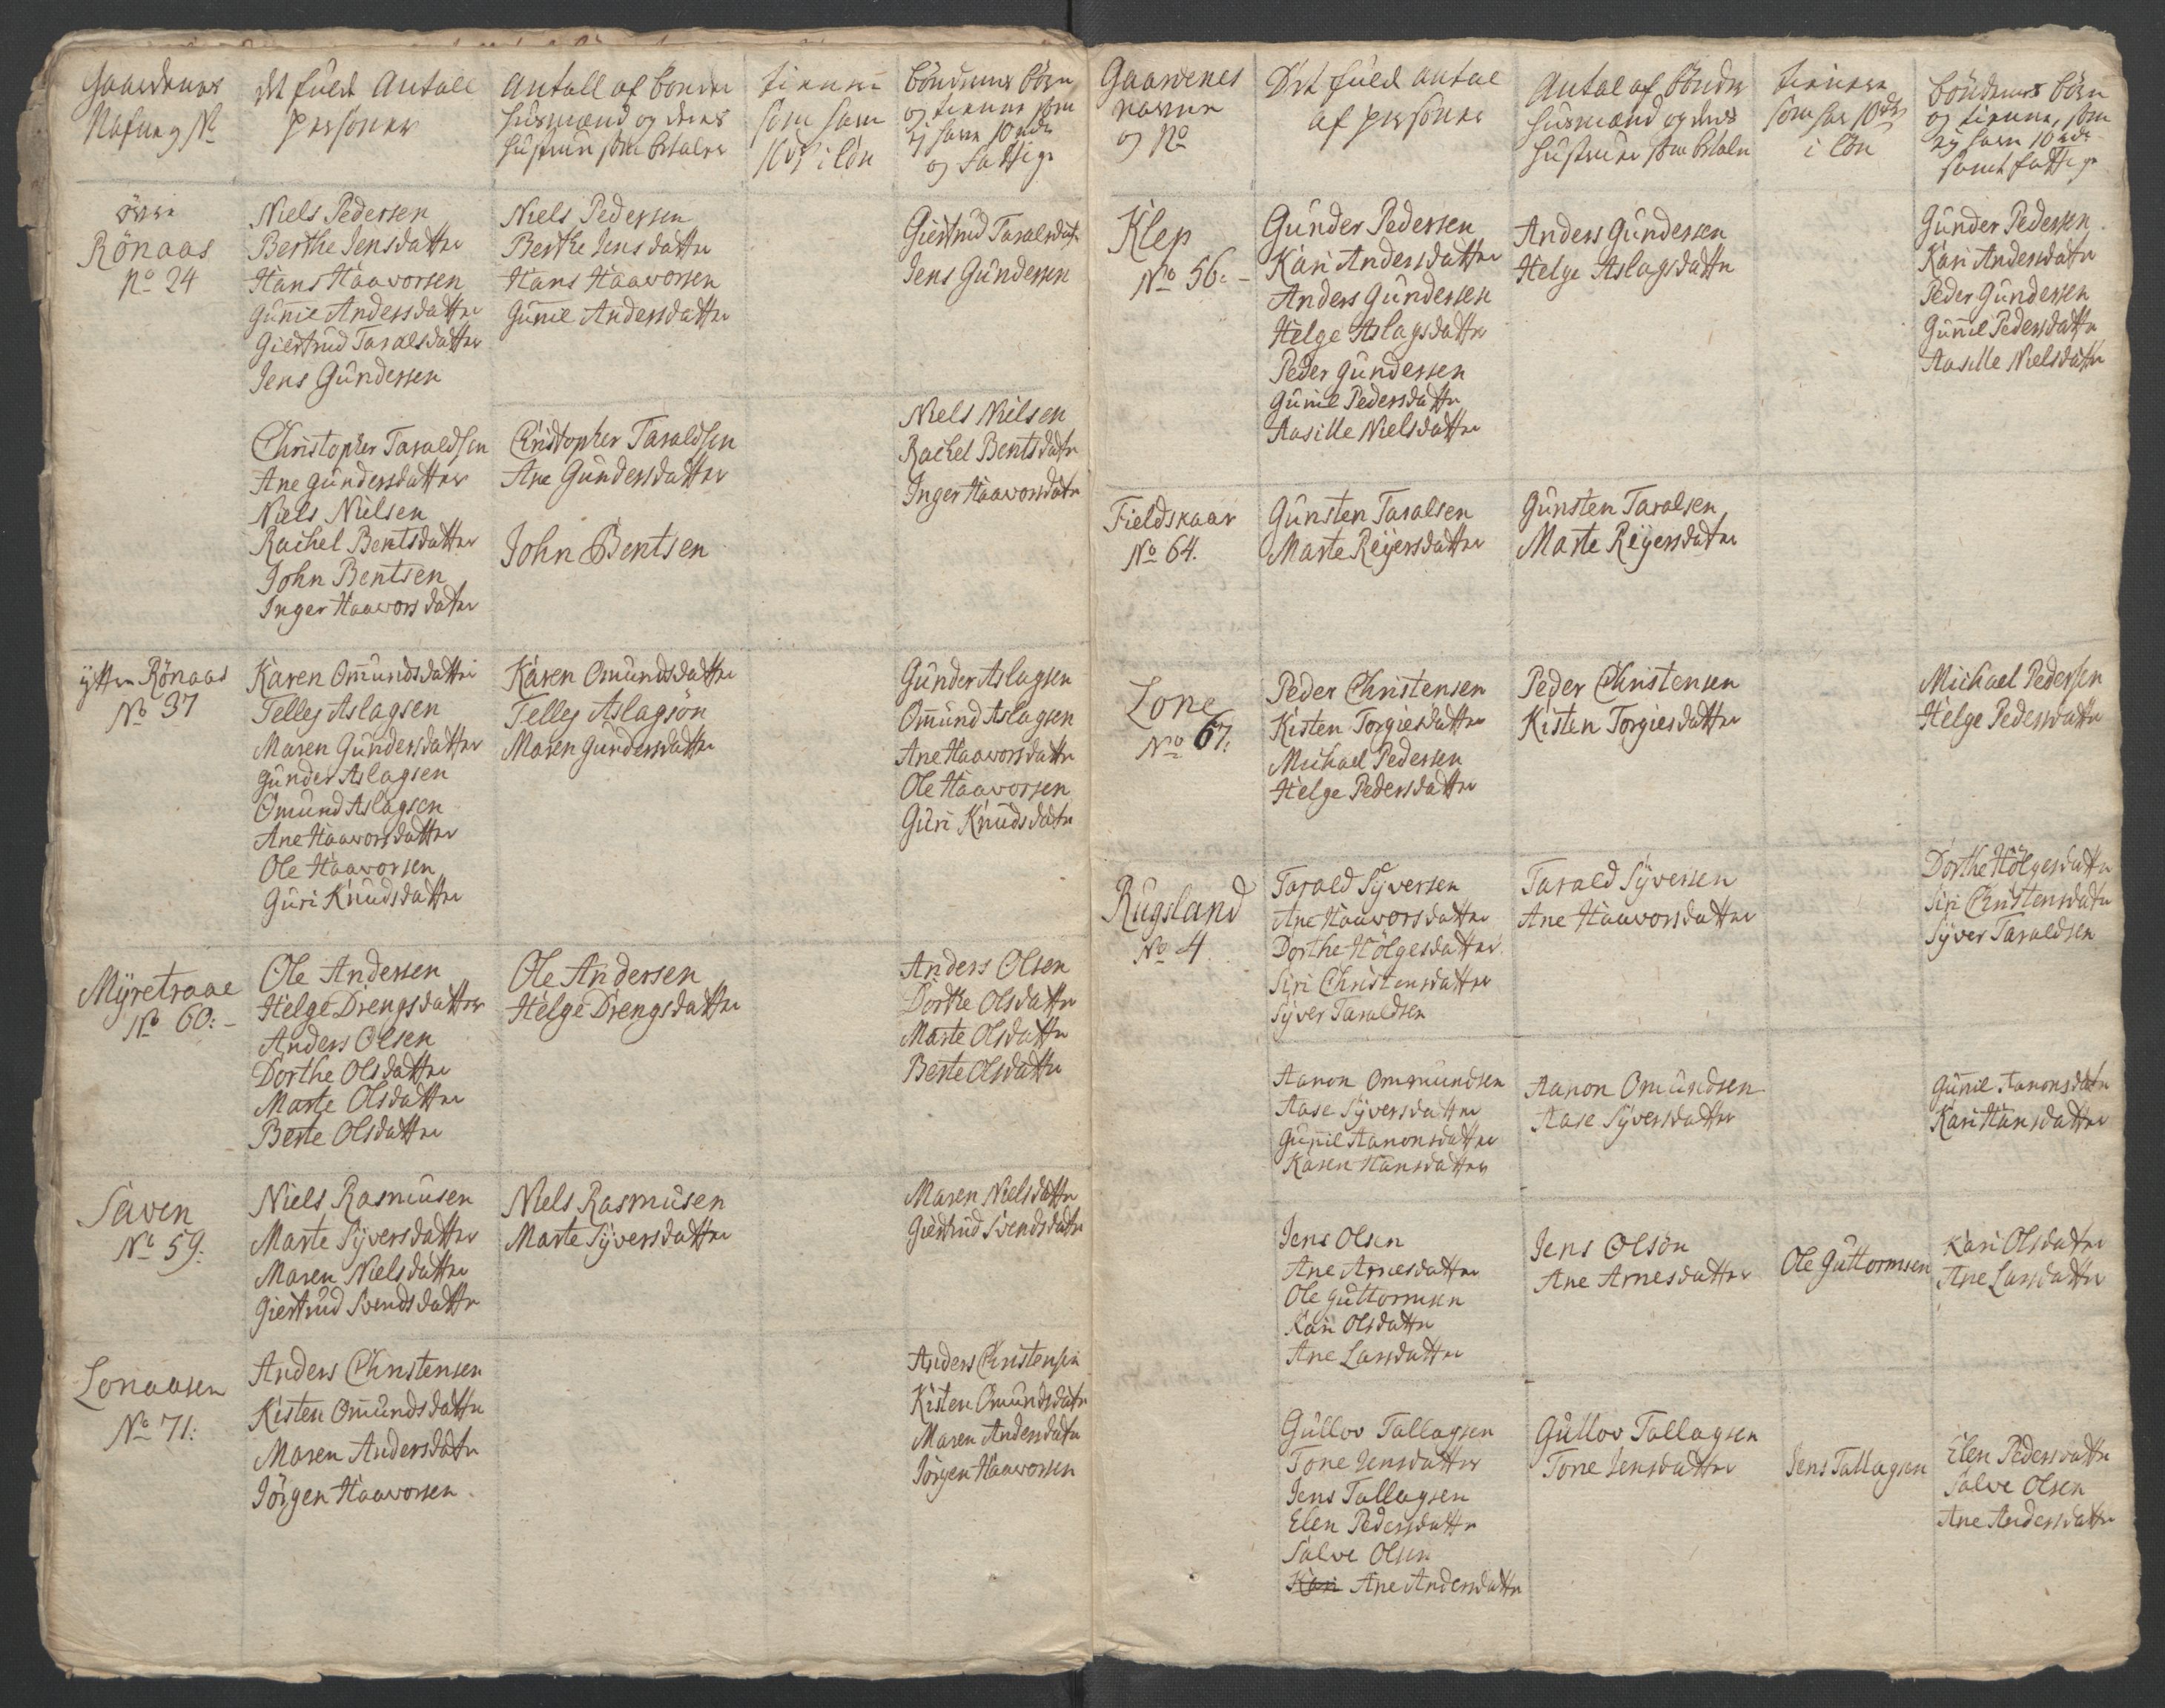 Gaardenes
Nafn og No
det fulde Antall
personer
Antall af bönder
husmænd og deres
hustruer som betaler
tienere
som have
i lön
böndernes börn
og tienere som
ej have 10 rdr
og fattige
övre
Rönaas
No 24
Niels Pedersen
Berthe Jensdatter
Hans Haaworsen
Guñie Andersdatter
Giertrud Taralsdatter
Jens Gundersen
Niels Pedersen
Berthe Jensdatter
Hans Haaworsen
Guñie Andersdatter
Giertrud Taralsdatr
Jens Gundersen
Christopher Taraldsen
Ane Gundersdatter
Niels Nielsen
Rachel Bentsdatter
John Bentsen
Inger Haaworsdatter
Christopher Taraldsen
Ane Gundersdatter
John Bentsen
Niels Nielsen
Rachel Bentsdatr
Inger Haaworsdatr
ÿttre Rönaas
No 37
Karen Om̃undsdatter
Tellej Aslagsen
Maren Gundersdatter
Gunder Aslagsen
Omund Aslagsen
Ane Haaworsdatter
Ole Haaworsen
Guri Knudsdatter
Karen Omundsdatter
Tellej Aslagsön
Maren Gundersdatter
Gunder Aslagsen
Om̃und Aslagsen
Ane Haaworsdattr
Ole Haaworsen
Guri Knudsdatr
Mÿretraae
No 60:-
Ole Andersen
Helge Drengsdatter
Anders Olsen
Dorthe Olsdatter
Marte Olsdatter
Berte Olsdatter
Ole Andersen
Helge Drengsdatter
Anders Olsen
Dorthe Olsdattr
Marte Olsdattr
Berte Olsdattr
Saven
No 59:
Niels Rasmusen
Marte Sÿversdatter
Maren Nielsdatter
Giertrud Svendsdattr
Niels Rasmusen
Marte Sÿversdatter
Maren Nielsdattr
Giertrud Svendsdatr
Lonaasen
No 71:
Anders Christensen
Kisten Om̃undsdattr
Maren Andersdatr
Jörgen Haaworsen
Anders Christensen
Kisten Omundsdatr
Maren Andersdatr
Jörgen Haaworsen
Gaardenes
navne
og No
Det fulde antal
af personer
Antal af bönder
husmænd og deres
hustruer som betaler
tienere
som har 10 rdr
i lön
böndernes börn
og tienere, som
ej have 10 rdr
samt fattige
Klep
No 56:-
Gunder Pedersen
Kari Andersdatter
Anders Gundersen
Helge Aslagsdatter
Peder Gundersen
Guñil Pedersdattr
Aasille Nielsdatter
Anders Gundersen
Helge Aslagsdattr
Gunder Pedersen
Kari Andersdattr
Peder Gundersen
Guñil Pedersdattr
Aasille Nielsdattr
Fieldskaar
No 64.
Gunsten Taralsen
Marte Reÿersdatter
Gunsten Taralsen
Marte Reÿersdatter
Lone
No 67:
Peder Christensen
Kisten Torgiesdatter
Michael Pedersen
Helge Pedersdatter
Peder Christensen
Kisten Torgiesdatter
Michael Pedersen
Helge Pedersdattr
Rugsland
No 4
Tarald Sÿversen
Ane Haaworsdatter
Dorthe Hölgesdatter
Siri Christensdatter
Sÿver Taraldsen
Tarald Sÿversen
Ane Haaworsdatter
Dorthe Hölgesdattr
Siri Christensdatr
Sÿver Taraldsen
Aanon Ommundsen
Aase Sÿversdatter
Guñil Aanonsdatter
Karen Hansdatter
Aanon Omundsen
Aase Sÿversdatter
Guñil Aanonsdatr
Kari Hansdatter
Jens Olsen
Ane Arnesdatter
Ole Guttormsen
Kari Olsdattr
Ane Larsdatter
Jens Olsön
Ane Arnesdatter
Ole Guttormsen
Kari Olsdatter
Ane Larsdatter
Gullov Tallagsen
Tone Jensdatter
Jens Tallagsen
Elen Pedersdattr
Salve Olsen
Kari Ane Andersdattr
Gullov Tallagsen
Tone Jensdatter
Jens Tallagsen
Elen Pedersdattr
Salve Olsen
Ane Andersdattr